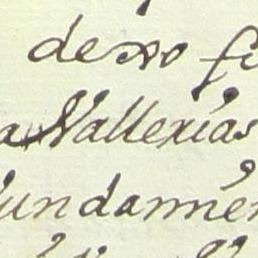 dexo fi
a Nallexias
undamen